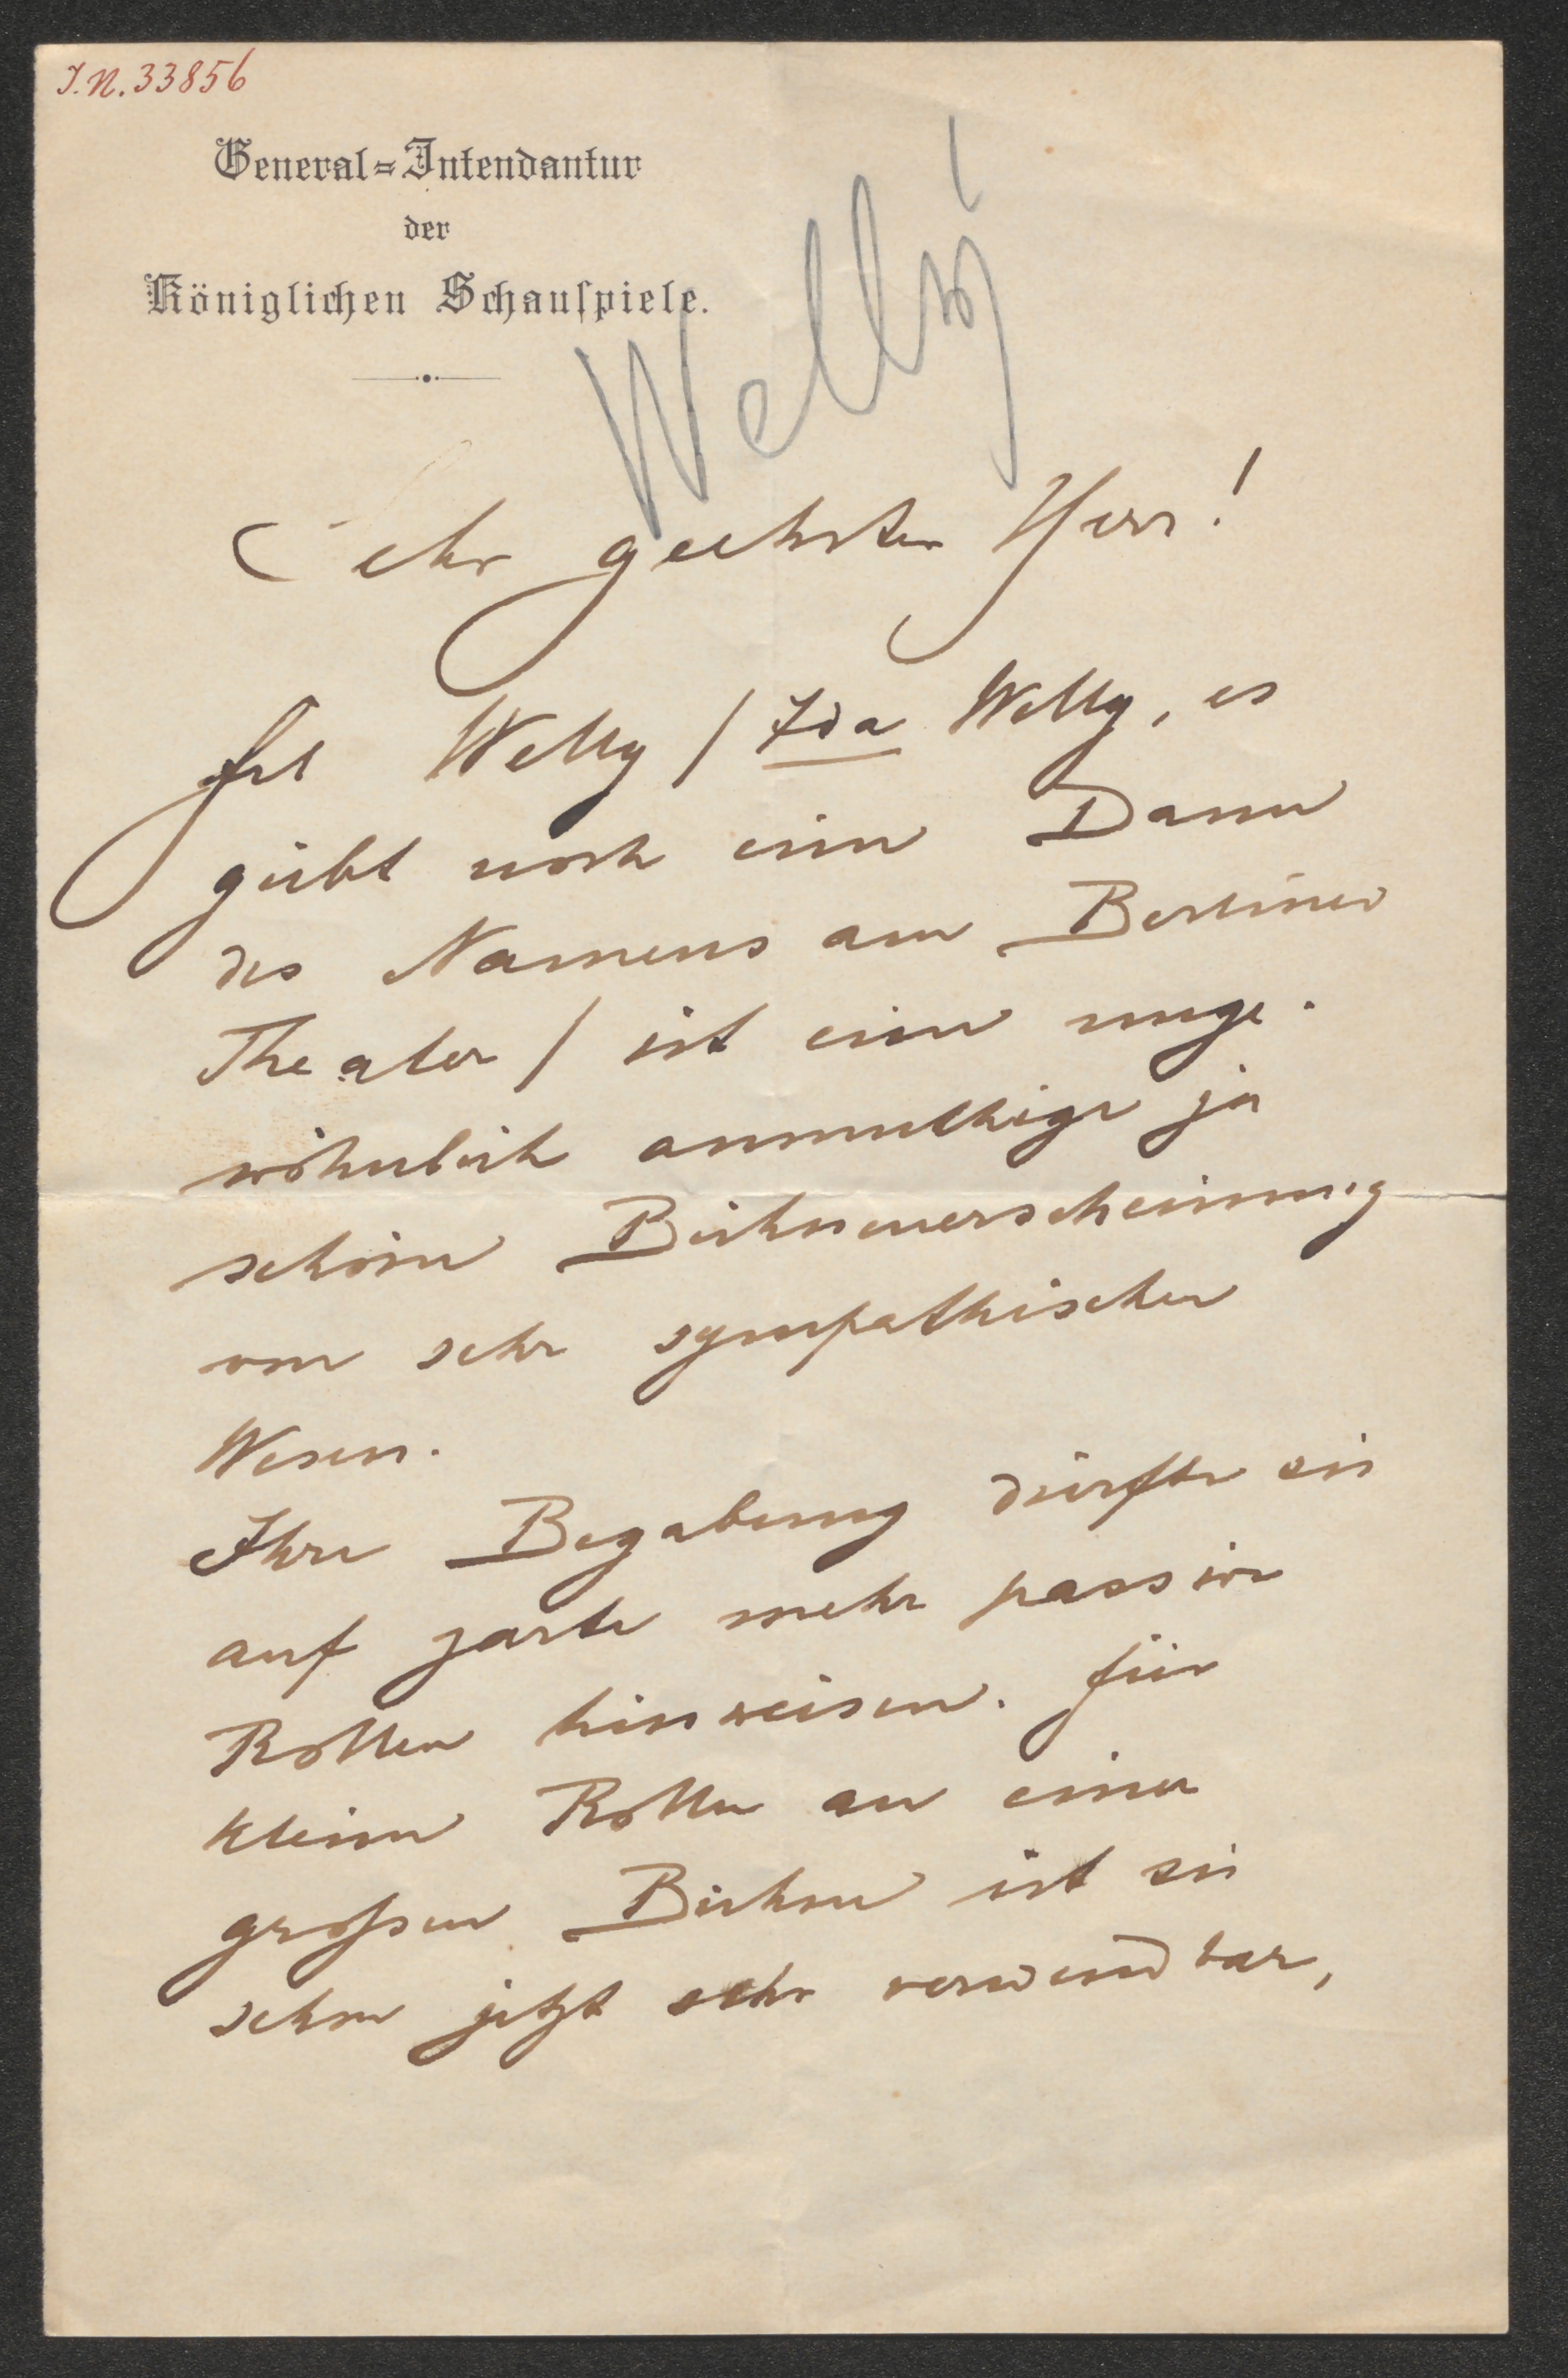 J.N. 33856
General=Intendantur
der
Königlichen Schauspiele.
Welly
Sehr geehrter Herr!
Frl Welly / Ida Welly, es
giebt noch eine Dame
des Namens am Berliner
Theater / ist eine unge-
wöhnlich anmuthige ja
schöne Bühnenerscheinung
von sehr sympathischen
Wesen.
Ihre Begabung dürfte sie
auf zarte mehr passive
Rollen hinweisen. für
kleine Rollen an einer
großen Bühne ist sie
schon jetzt sehr verwendbar,